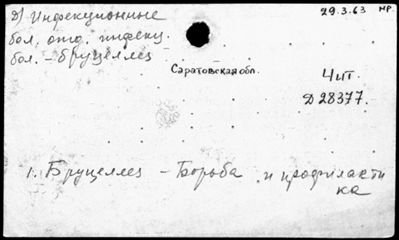 д) Инфекционные
29.3.63 НР.
бол. отд. инфекц.
бол. - бруцеллез
Саратовская обл.
Чит.
Д 28377.
1. Бруцеллез - Борьба и профилакти
ка